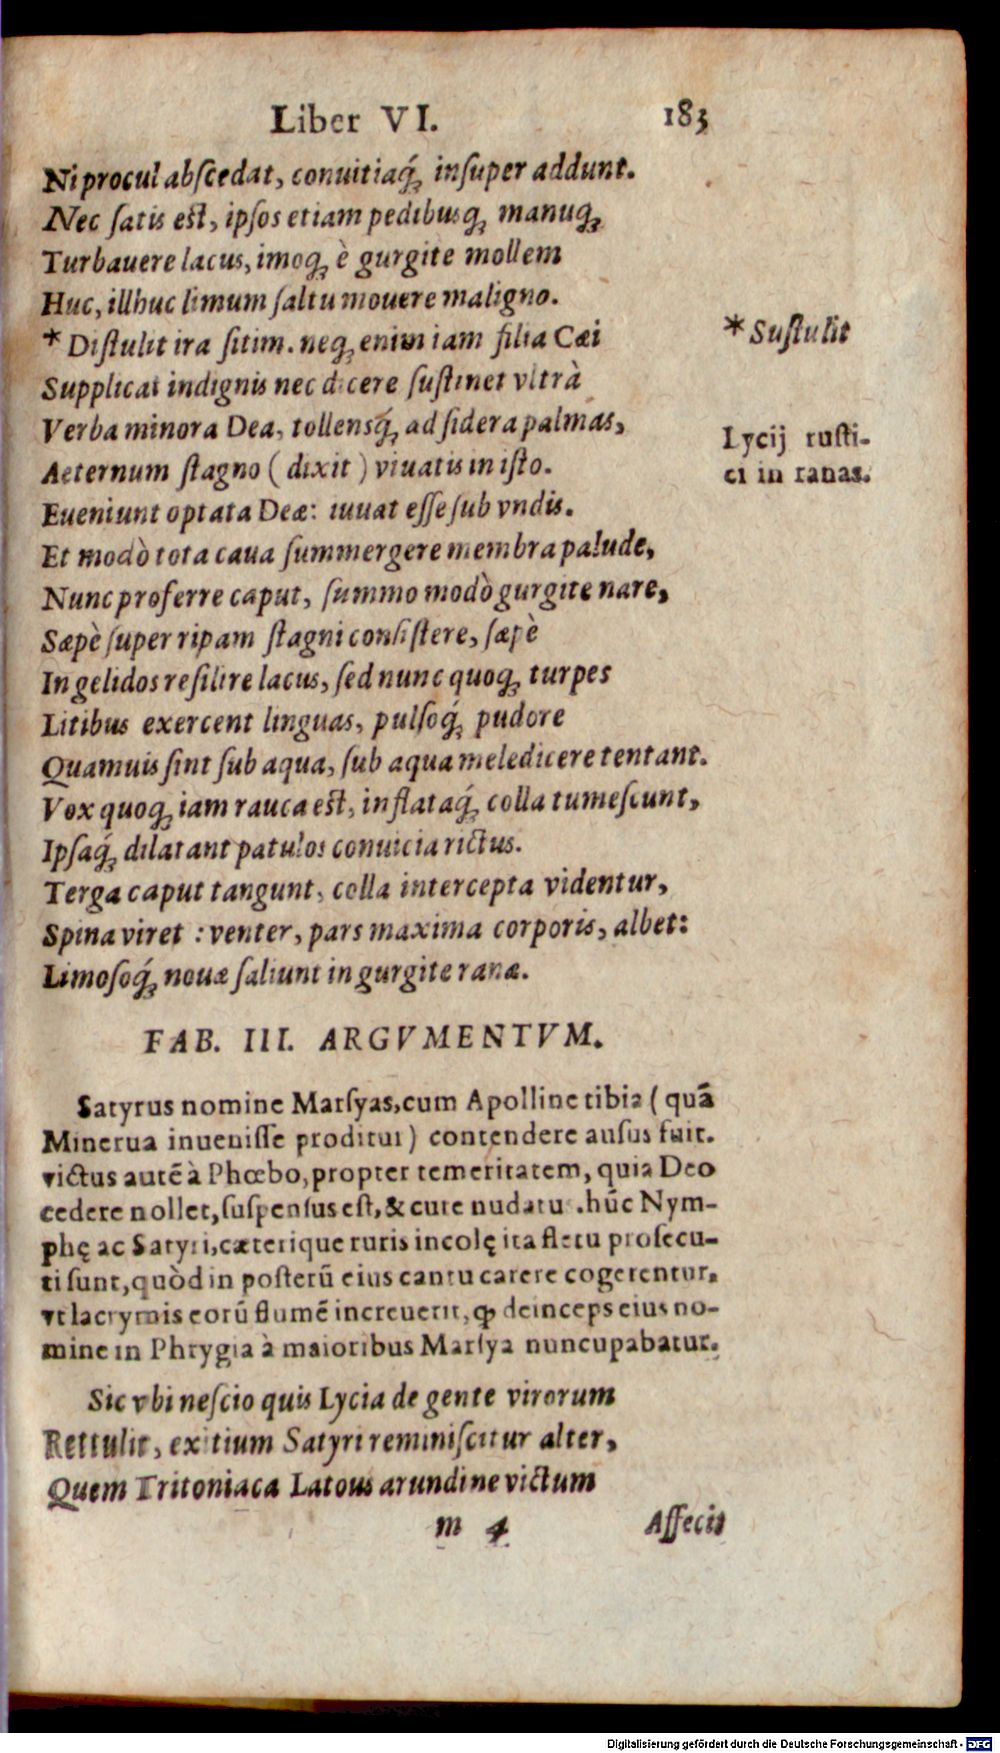 Liber VI. 183
Ni procul abſcedat, conuitiaq́; inſuper addunt.
Nec ſatis eſt, ipſos etiam pedibusq; manuq;
Turbauere lacus, imoq; è gurgite mollem
Huc, illhuc limum ſaltu mouere maligno.
* Diſtulit ira ſitim. neq; enim iam filia Cæi
* Suſtulit
Supplicat indignis nec dicere ſuſtinet vltrà
Verba minora Dea, tollensq́; ad ſidera palmas,
Aeternum ſtagno ( dixit ) viuatis in iſto.
Lycij ruſti-
ci in ranas.
Eueniunt optata Deæ: iuuat eſſe ſub vndis.
Et modò tota caua ſummergere membra palude,
Nunc proferre caput, ſummo modò gurgite nare,
Sæpè ſuper ripam ſtagni conſiſtere, ſæpè
In gelidos reſilire lacus, ſed nunc quoq; turpes
Litibus exercent linguas, pulſoq́; pudore
Quamuis ſint ſub aqua, ſub aqua meledicere tentant.
Vox quoq; iam rauca eſt, inflataq́; colla tumeſcunt,
Ipſaq́; dilatant patulos conuicia rictus.
Terga caput tangunt, colla intercepta videntur,
Spina viret : venter, pars maxima corporis, albet:
Limoſoq́; nouæ ſaliunt in gurgite ranæ.
FAB. III. ARGVMENTVM.
Satyrus nomine Marſyas, cum Apolline tibia ( quā
Minerua inueniſſe proditur) contendere auſus fuit.
victus autē à Phœbo, propter temeritatem, quia Deo
cedere nollet, ſuſpenſus eſt, & cute nudatus. hūc Nym-
phę ac Satyri, cæterique ruris incolę ita fletu proſecu-
ti ſunt, quòd in poſterū eius cantu carere cogerentur,
vt lacrymis eorū flumē increuerit, ꝙ deinceps eius no-
mine in Phrygia à maioribus Marſya nuncupabatur.
Sic vbi neſcio quis Lycia de gente virorum
Rettulit, exitium Satyri reminiſcitur alter,
Quem Tritoniaca Latous arundine victum
m 4 Affecit
Digitalisierung gefördert durch die Deutsche Forschungsgemeinschaft - DFG